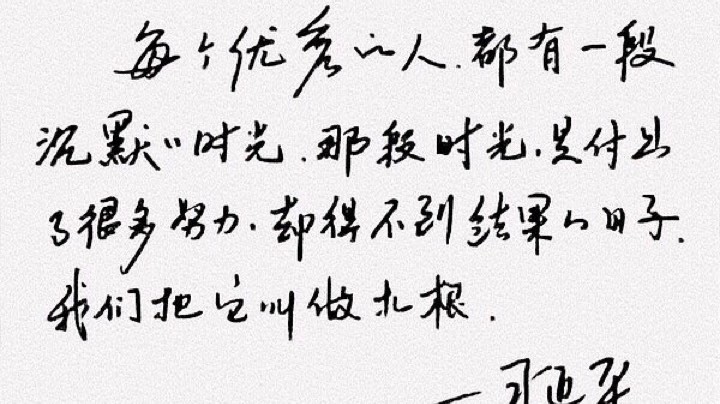 每个优秀的人.都有一段
沉默的时光.那段时光.是付出
了很多努力.却得不到结果的日子.
我们把它叫做扎根.